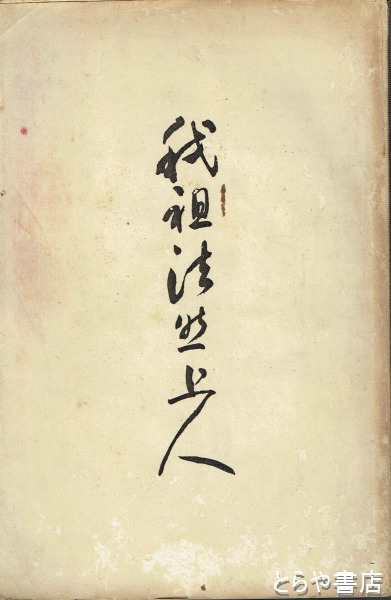 我祖法然上人
とらや書店